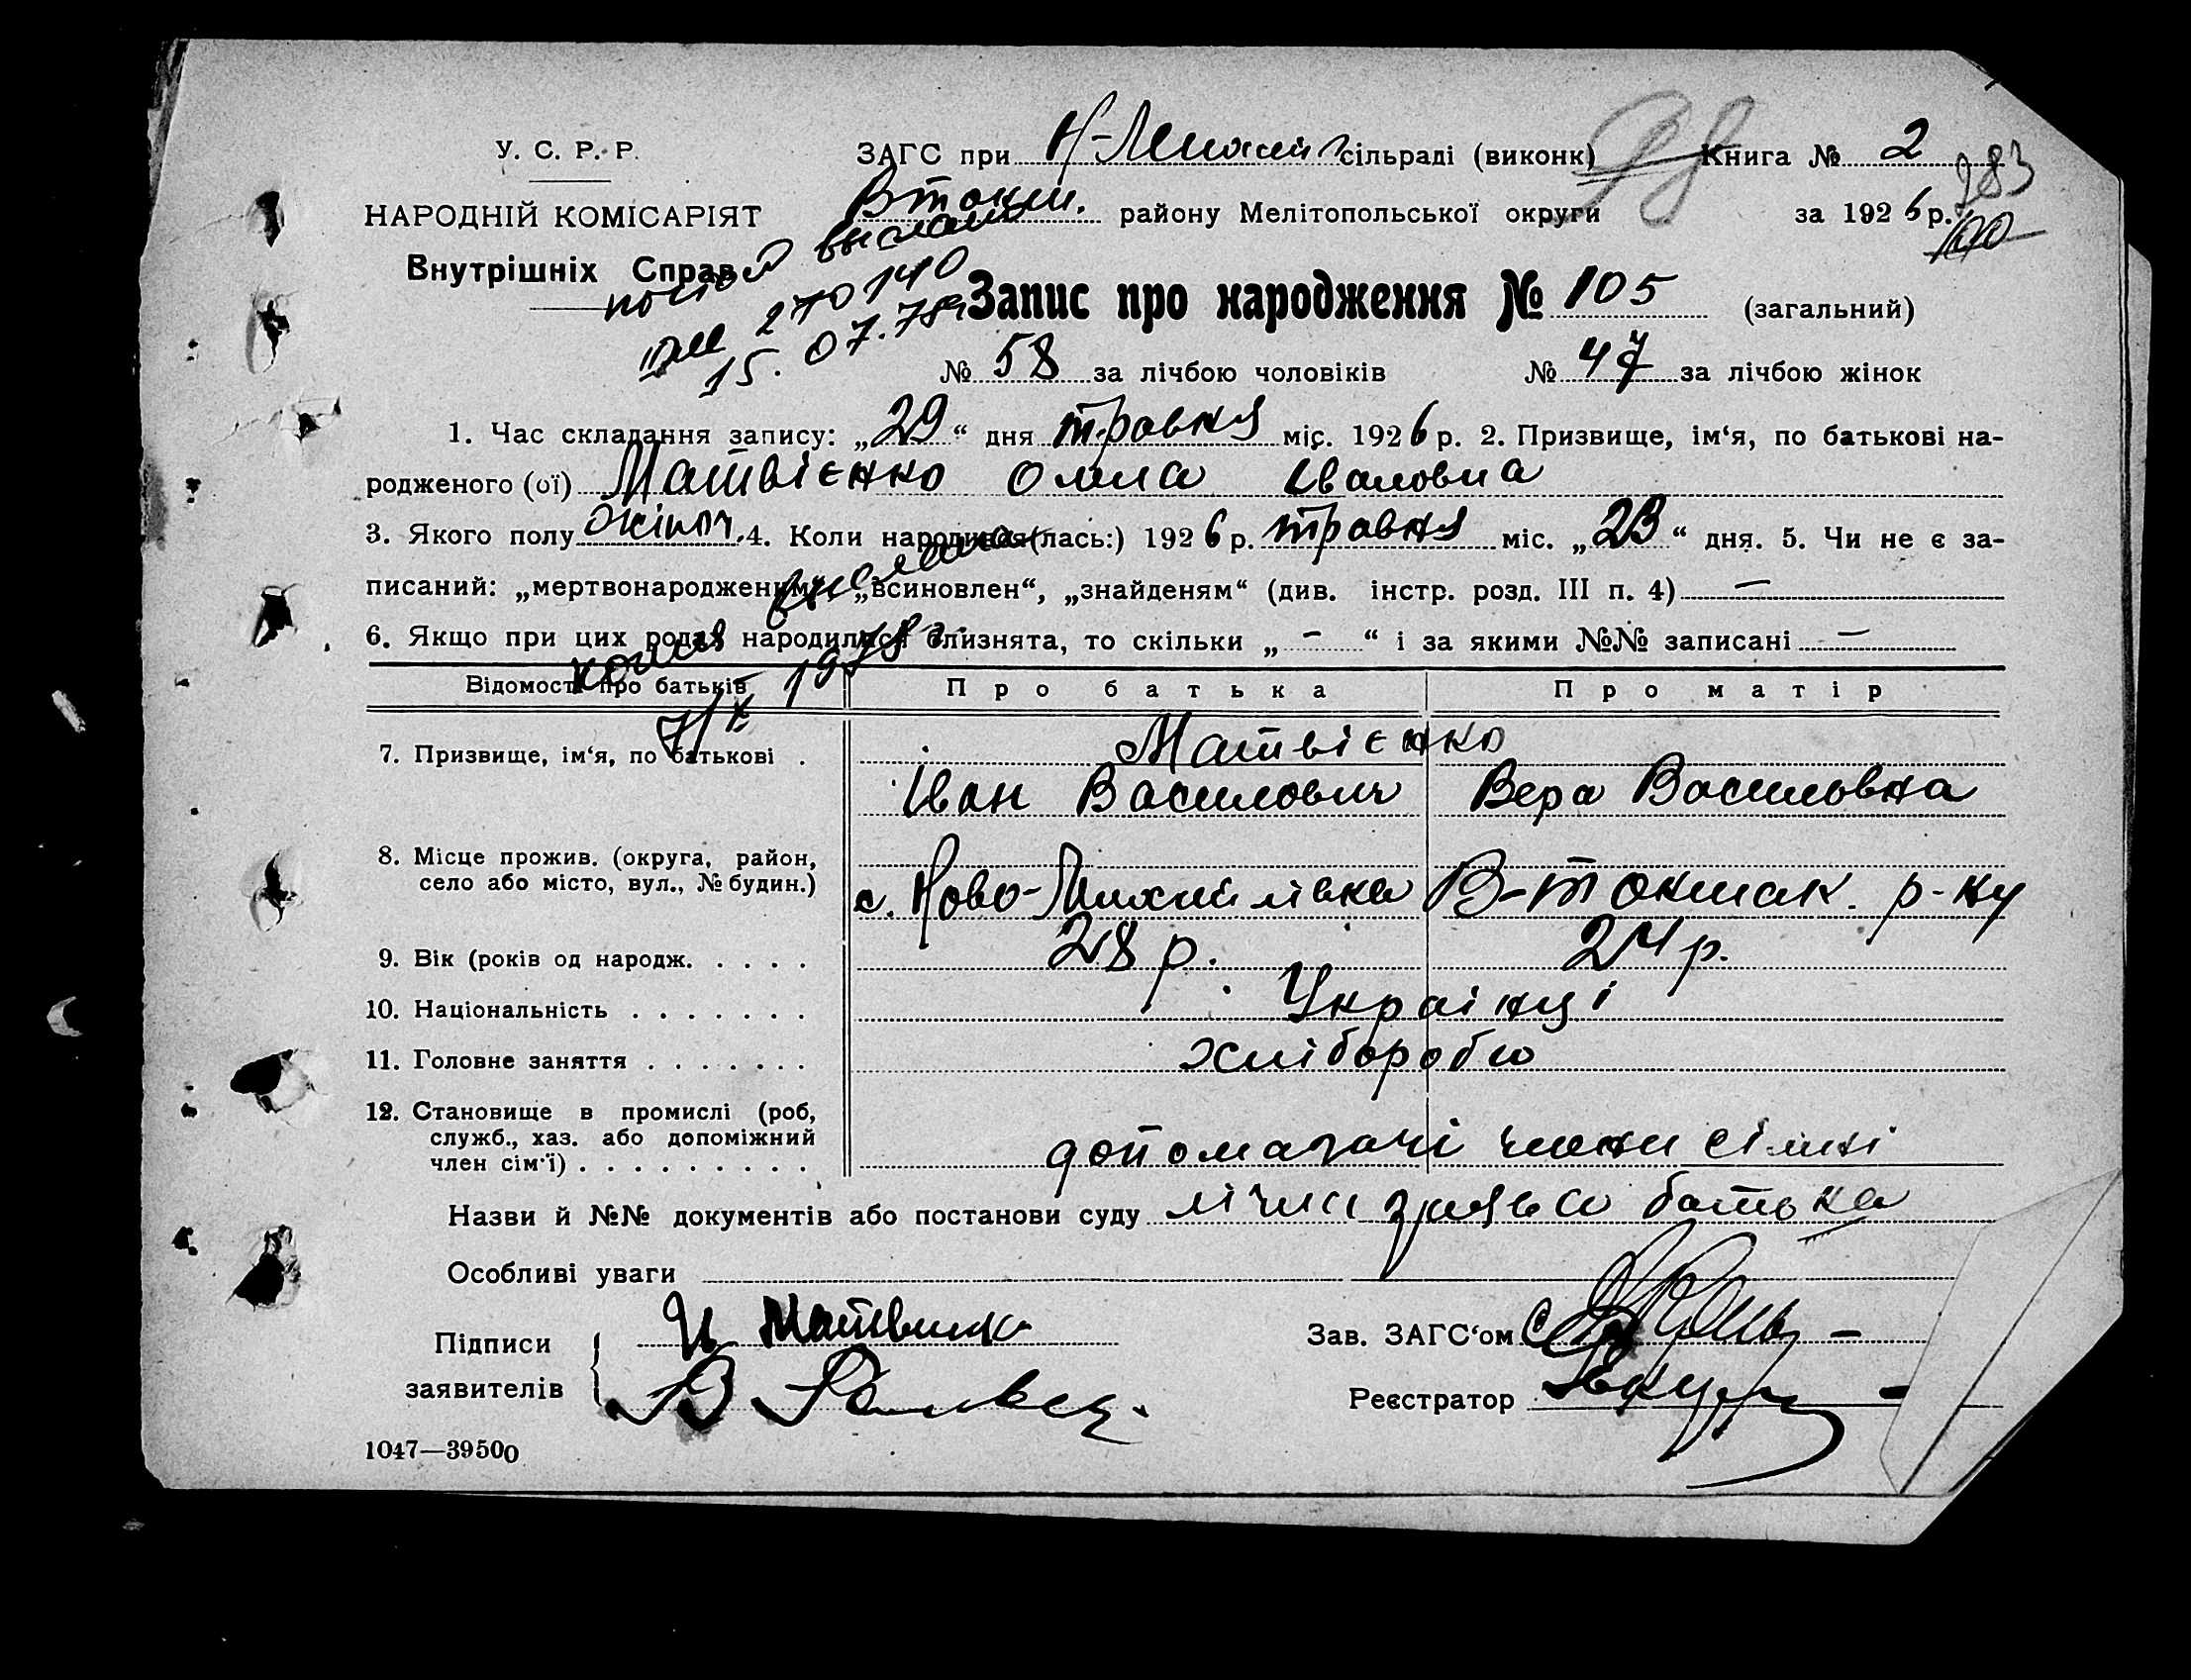 У. С. Р. Р.
ЗАГС при Н-Михайл сільраді (виконк) Книга № 2
283
НАРОДНІЙ КОМІСАРІЯТ
В токм. району Мелітопольської округи за 1926 р.
100
Внутрішніх Справ
выслан
270140
15.07.78
Запис про народження № 105 (загальний)
№ 58 за лічбою чоловіків № 47 за лічбою жінок
1. Час складання запису: „29“ дня травня міс. 1926 р. 2. Призвище, ім‘я, по батькові на-
родженого (ої) Матвієнко Олна Івановна
3. Якого полу жіноч. 4. Коли народився (лась:) 1926 р. травня міс. „23“ дня. 5. Чи не є за-
писаний: „мертвонародженим“, „всиновлен“, „знайденям“ (див. інстр. розд. III п. 4) —
6. Якщо при цих родах народилися близнята, то скільки „ - “ і за якими №№ записані —
копия выслана
7/X 1978 г.
Відомості про батьків Про батька Про матір
7. Призвище, ім‘я, по батькові . Матвієнко
Іван Василович Вера Василовна
8. Місце прожив. (округа, район,
село або місто, вул., № будин.) с. Ново-Михайлівка В-Токмак. р-ну
9. Вік (років од народж. . . . . 28 р. 24 р.
10. Національність . . . . . . . Українці
11. Головне заняття . . . . . . . хлібороби
12. Становище в промислі (роб,
служб., хаз. або допоміжний
член сім‘ї) . . . . . . . . . допомагачі члени сімні
Назви й №№ документів або постанови суду лічна заява батька
Особливі уваги
Підписи И Матвиенко Зав. ЗАГС‘ом
заявителів В Реєстратор
1047—39500